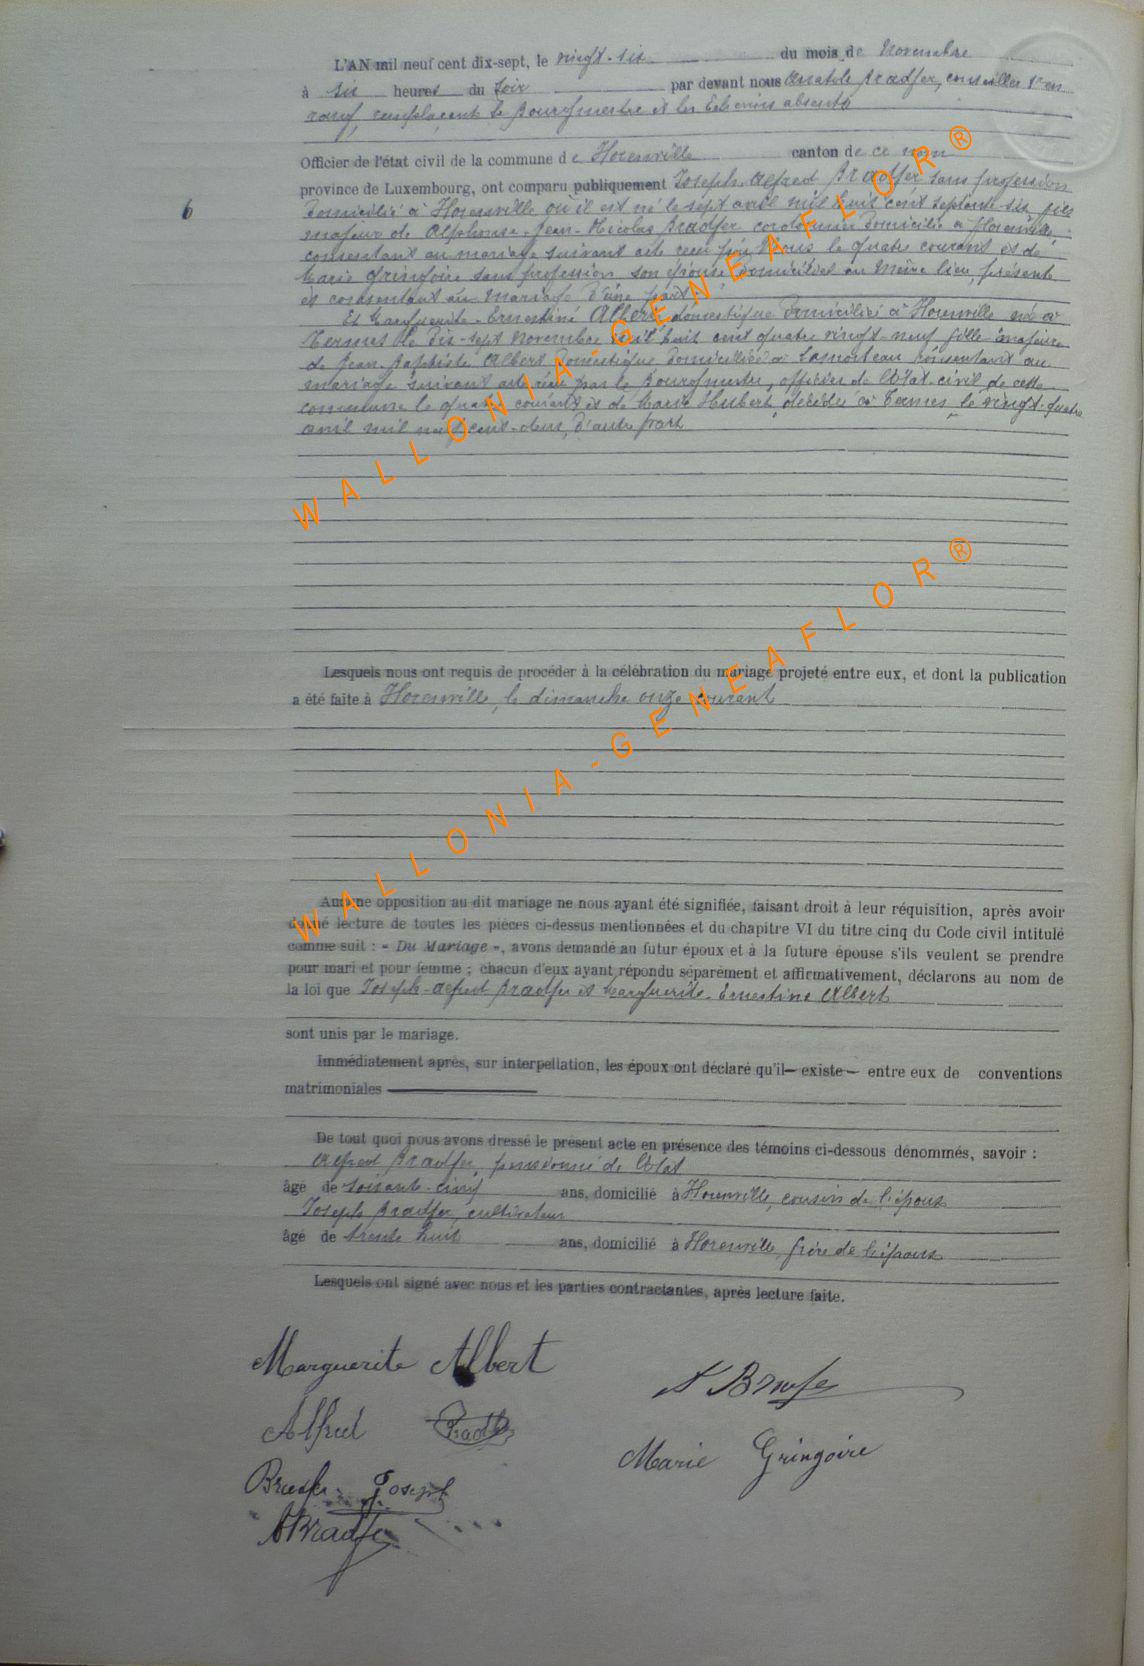 L'AN mil neuf cent dix-sept, le vingt-six du mois de Novembre
à six heures du soir par devant nous Anatole Bradfer, conseiller 1er en
rang, remplaçant le Bourgmestre et les Echevins absents
Officier de l'état civil de la commune de Florenville canton de ce nom
province de Luxembourg, ont comparu publiquement Joseph-Alfred Bradfer sans profession
6
domicilié à Florenville où il est né le sept avril mil huit cent septante-six, fils
majeur de Alphonse-Jean-Nicolas Bradfer cordonnier domicilié à Florenville
consentant au mariage suivant acte reçu par Nous le quatre courant et de
Marie Gringoire sans profession son épouse domiciliée au même lieu, présente
et consentant au mariage d'une part.
Et Marguerite-Ernestine Albert, domestique domiciliée à Florenville née à
Termes le dix-sept Novembre mil huit cent quatre vingt neuf fille majeure
de Jean Baptiste Albert domestique domicilié à consentant au
mariage suivant acte reçu par le Bourgmestre, officier de l'état-civil de cette
commune le quatre courant et de Marie Hubert, décédée à Termes le vingt-quatre
avril mil neuf cent-deux, d'autre part
Lesquels nous ont requis de procéder à la célébration du mariage projeté entre eux, et dont la publication
a été faite à Florenville, le dimanche onze courant
Aucune opposition au dit mariage ne nous ayant été signifiée, faisant droit à leur réquisition, après avoir
donné lecture de toutes les pièces ci-dessus mentionnées et du chapitre VI du titre cinq du Code civil intitulé
comme suit : « Du Mariage », avons demandé au futur époux et à la future épouse s'ils veulent se prendre
pour mari et pour femme ; chacun d'eux ayant répondu séparément et affirmativement, déclarons au nom de
la loi que Joseph-Alfred Bradfer et Marguerite-Ernestine Albert
sont unis par le mariage.
Immédiatement après, sur interpellation, les époux ont déclaré qu'il — existe — entre eux de conventions
matrimoniales
De tout quoi nous avons dressé le présent acte en présence des témoins ci-dessous dénommés, savoir :
Alfred Bradfer, pensionné de l'état
âgé de soixante-cinq ans, domicilié à Florenville, cousin de l'époux
Joseph Bradfer, cultivateur
âgé de trente huit ans, domicilié à Florenville frère de l'époux
Lesquels ont signé avec nous et les parties contractantes, après lecture faite.
Marguerite Albert
A Bradfer
Alfred Bradfer
Marie Gringoire
Bradfer Joseph
ABradfer
WALLONIA-GENEAFLOR®
WALLONIA-GENEAFLOR®